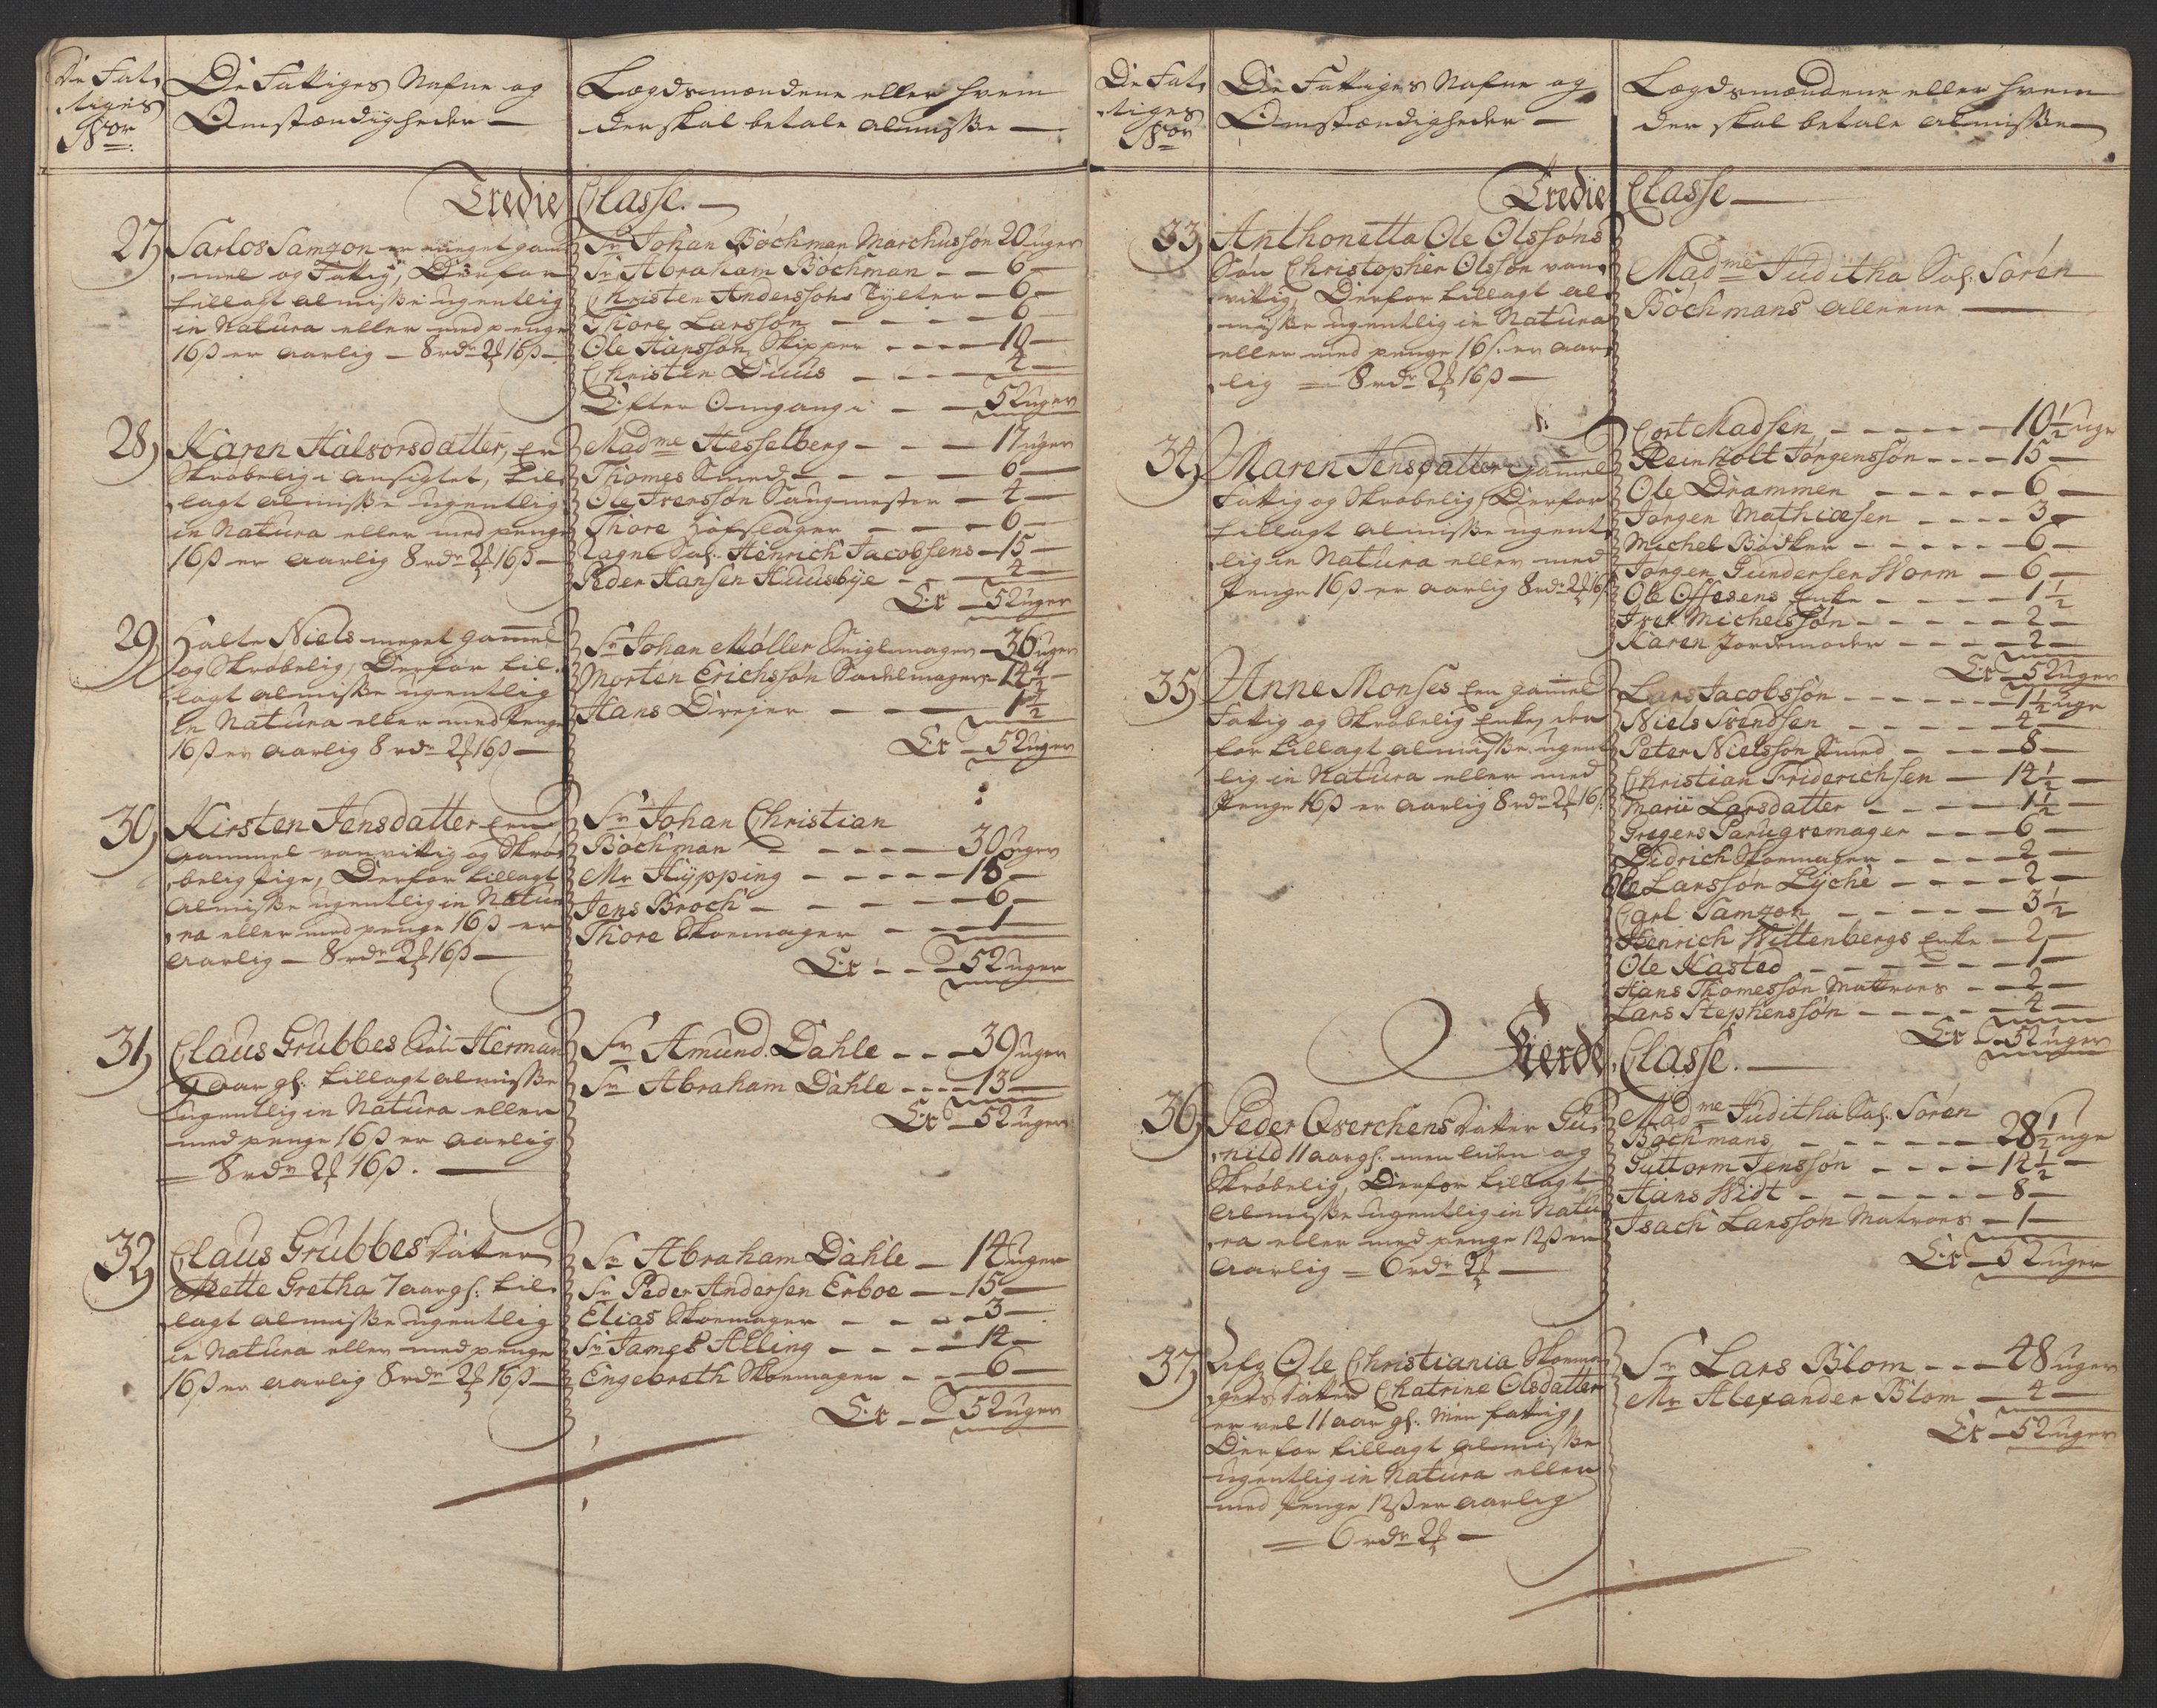 De Fat-
tiges
No
De Fattiges Nafne og
Omstændigheder —
Lægdsmændene eller hvem
der skal betale almisse —
Tredie Classe. —
27,
Carlos Samzon er meget gam-
mel og Fattig, Derfor
tillagt almisse ugentlig
in Natura eller med penge
16 ß er aarlig — 8 rdr 2 # 16 ß —
Sr Johan Bòchman Marchussòn 20 uger
Sr Abraham Bòchman — — 6 —
Christen Anderssòns — 6 —
Thore Larssòn — — — 6 —
Ole Hanssòn Skipper — — — 10 —
Christen Duus — — — 4 —
Efter Omgang — — 52 uger
28,
Karen Halvorsdatter, er
Skròbelig i ansigtet, til-
lagt almisse ugentlig
in Natura eller med penge
16 ß er aarlig 8 rdr 2 # 16 ß —
Madme Hesselberg — — — 17 uger
Thomes Smed — — — 6 —
Ole Iverssòn Saugmester — 4 —
Thore Hofslager — — — 6 —
Lagnl Sal. Henrich Jacobsens — 15 —
Peder Hansen Huusbÿe — — 4 —
Er — 52 uger
29,
Halte Niels meget gammel
og Skròbelig, Derfor til-
lagt almisse ugentlig
in Natura eller med Penge
16 ß er aarlig 8 rdr 2 # 16 ß —
Sr Johan Mòller Seiglmager — 36 uger
Morten Erichssòn Sadelmager — 14 1/2 —
Hans Drejer — — — 1 1/2
Er — 52 uger
30,
Kirsten Jensdatter een
Gammel vanvittig og Skrò-
belig Pige, Derfor tillagt
Almisse ugentlig in Natu-
ra eller med penge 16 ß er
aarlig — 8 rdr 2 # 16 ß —
Sr Johan Christian
Bòchman — — — — 30 uger
Mr Hÿpping — — — — — 15 —
Jens Broch — — — — 6 —
Thore Skoemager — — 1 —
Er — — 52 uger
31,
Claus Grubbes Sòn Herman
9 aar gl. tillagt almisse
ugentlig in Natura eller
med penge 16 ß er aarlig
— 8 rdr 2 # 16 ß. —
Sr Amund Dahle — — — 39 uger
Sr Abraham Dahle — — — 13 —
Er — 52 uger
32,
Claus Grubbes Datter
Mette Gretha 7 aar gl. til-
lagt almisse ugentlig
in Natura eller med penge
16 ß er aarlig 8 rdr 2 # 16 ß —
Sr Abraham Dahle — 14 uger
Sr Peder Andersen Erboe — 15 —
Elias Skoemager — — — 3 —
Sr James Alling — — — — 14 —
Engebreth Skoemager — — 6 —
Er — — 52 uger
De Fat-
tiges
No
De Fattiges Nafne og
Omstændigheder —
Lægdsmændene eller hvem
der skal betale almisse —
Tredie Classe —
33,
Anthonetta Ole Olssòns
Sòn Christopher Olssòn van-
vittig, Derfor tillagt al-
misse ugentlig in Natura
eller med penge 16 ß. er aar-
lig — 8 rdr 2 # 16 ß —
Madme Juditha Sal. Sòren
Bòchmans alleene —
34,
Maren Jensdatter gammel
Fattig og Skròbelig, Derfor
tillagt almisse ugent-
lig in Natura eller med
Penge 16 ß er aarlig 8 rdr 2 # 16 ß.
Cort Madsen — — — — — 10 1/2 uge
Reinholt Jòrgenssòn — — — 15 —
Ole Drammen — — — — — 6 —
Jòrgen Mathiæsen — — — — 3 —
Michel Bòdker — — — — — 6 —
Jòrgen Gundersen Worm — 6 —
Ole Offesens Enke — — — — 1 1/2
Iver Michelssòn — — — — — 2 —
Karen Jordemoder — — — — 2 —
Er — 52 uger
35,
Anne Monses een gammel
Fattig og Skròbelig Enke, der-
for tillagt almisse ugent-
lig in Natura eller med
Penge 16 ß er aarlig 8 rdr 2 # 16 ß.
Lars Jacobssòn — — — — — 1 1/2 uge
Niels Svendsen — — — — 4 —
Peter Nielssòn Smed — — — 8 —
Christian Friderichsen — 14 1/2 —
Marie Larsdatter — — — — 1 1/2 —
Gregers Parugvemager — — — 6 —
Didrich Skoemager — — — — 2 —
Ole Larssòn Lÿche — — — — 2 —
Carl Samzon — — — — — 3 1/2
Henrich Wittenbergs Enke — 2 —
Ole Kasted — — — — — — 1 —
Hans Thomessòn Matroes — — 2 —
Lars Stephenssòn — — — — — 4 —
Er — 52 uger
Fierde Classe. —
36,
Peder Qverchens Datter Gu-
nild 11 aar gl. men liden og
Skròbelig, Derfor tillagt
Almisse ugentlig in Natu-
ra eller med penge 12 ß er
Aarlig — 6 rdr 2 # —
Madme Juditha Sal. Sòren
Bòchmans — — — — — 28 1/2 uge
Guttorm Jenssòn — — — — 14 1/2 —
Hans Widt — — — — — — 8 —
Isach Larssòn Matroes — 1 —
Er — 52 uger
37,
Ole Christiania Skoema-
gers Datter Chatrine Olsdatter
er vel 11 aar gl. men fattig,
Derfor tillagt almisse
ugentlig in Natura eller
med Penge 12 ß er aarlig
— 6 rdr 2 # —
Sr Lars Blom — — — 48 uger
Mr Alexander Blom — 4 —
Er — 52 uger